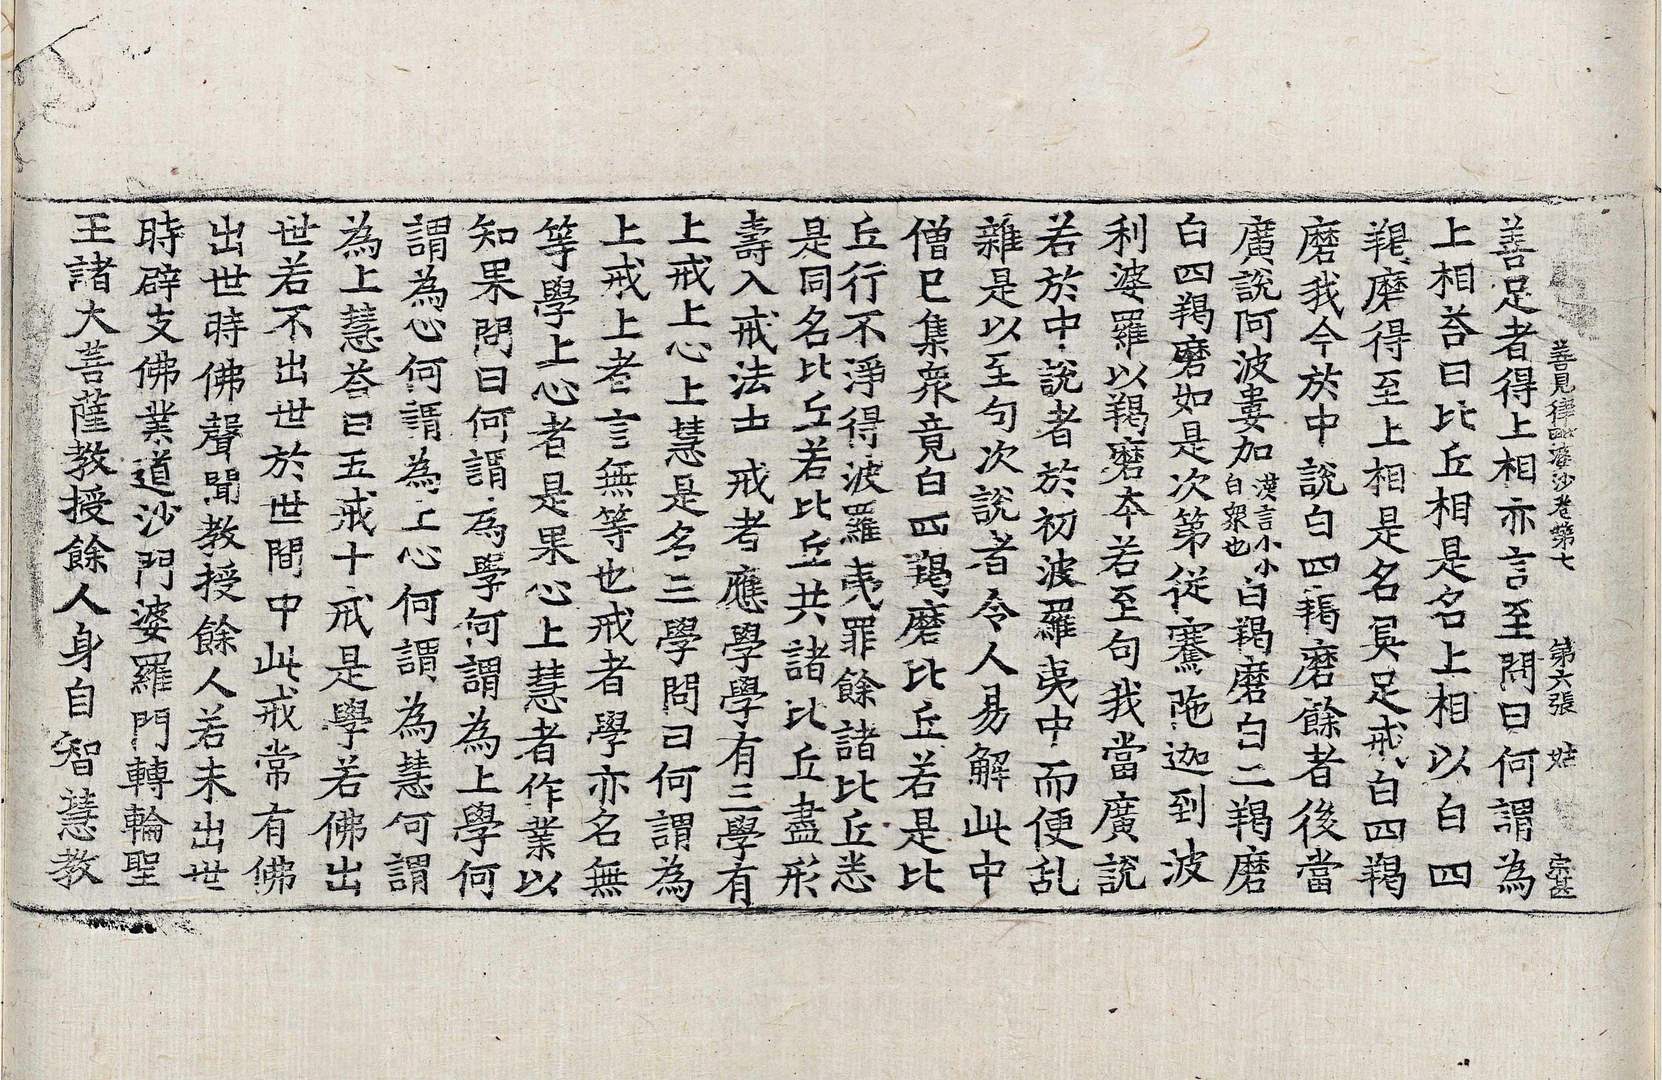 善見律毗婆沙卷第七　第六張　姑　宗甚
善足者得上相亦言至問曰何謂為
上相荅曰比丘相是名上相以白四
羯磨得至上相是名具足戒白四羯
磨我今於中說白四羯磨餘者後當
廣說阿波婁加漢言小小白衆也白羯磨白二羯磨
白四羯磨如是次第從騫陁迦到波
利婆羅以羯磨本若至句我當廣說
若於中說者於初波羅夷中而便乱
雜是以至句次說者令人易解此中
僧已集衆竟白四羯磨比丘若是比
丘行不淨得波羅夷罪餘諸比丘悉
是同名比丘若比丘共諸比丘盡形
壽入戒法士 戒者應學學有三學有
上戒上心上慧是名三學問曰何謂為
上戒上者言無等也戒者學亦名無
等學上心者是果心上慧者作業以
知果問曰何謂為學何謂為上學何
謂為心何謂為上心何謂為慧何謂
為上慧荅曰五戒十戒是學若佛出
世若不出世於世間中此戒常有佛
出世時佛聲聞教授餘人若未出世
時辟支佛業道沙門婆羅門轉輪聖
王諸大菩薩教授餘人身自智慧教